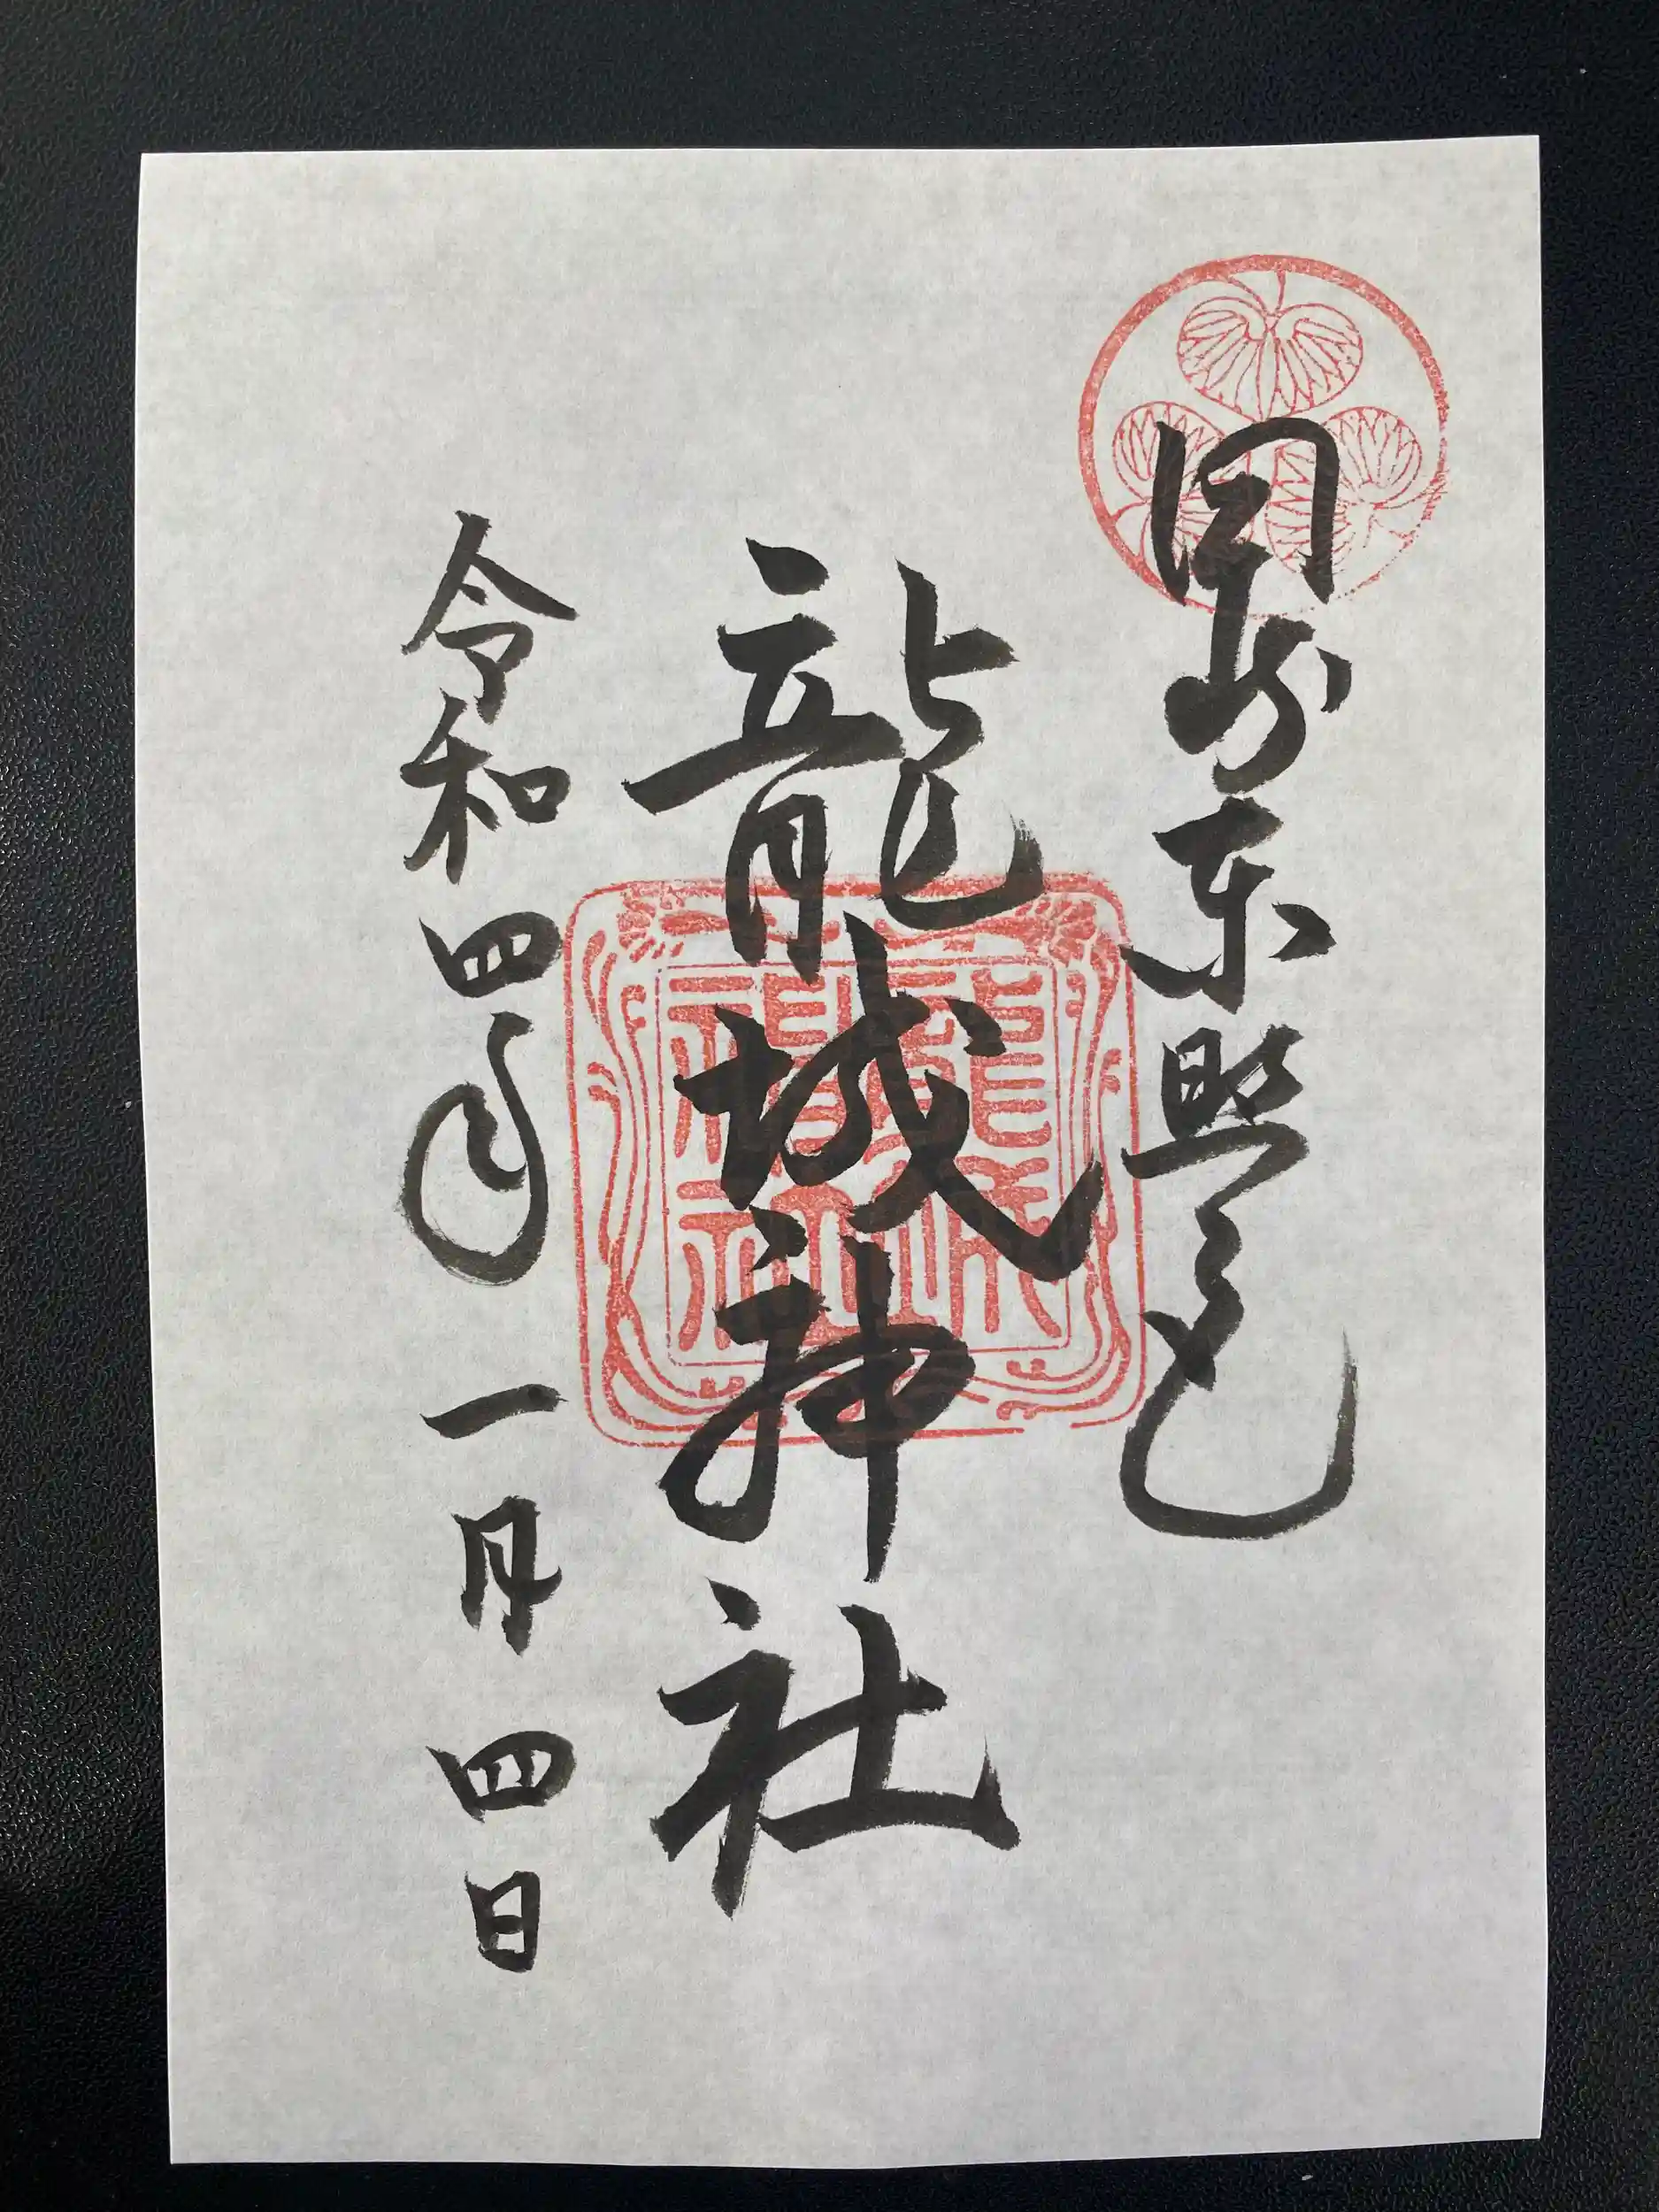 岡崎東照宮
龍城神社
令和四年一月四日
龍城
神社